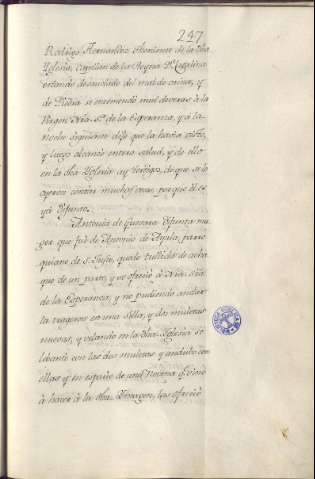 247
Rodrigo Hernandez Thesorero de la dha
Yglesia, Capellan de la Reyna Da Catalina
estando desauciado del mal de orina, y
de Piedra se encomendó mui deveras a la
Virgen Nra. Sa. de la Esperanza, y a la
noche siguiente dijo que la havia visto,
y luego alcanzó entera salud, y de ello
en la dha Yglesia ay testigos, de que se lo
oyeron contar muchas veces porque él es
ya Difunto.
Antonia de Guevara Difunta mu
ger que fué de Antonio de Aquila, parro
quiano de S. Juste, quedo tullida de acha
que de un parto, y se ofreció a Nra. Sra.
de la Esperanza, y no pudiendo andar
la trageron en una silla, y dos muletas
nuevas, y velando en la dha. Yglesia se
lebantó con las dos muletas y anduvo con
ellas y en espacio de una Novena q. vino
á hacer á la dha. Ymagen, las ofreció